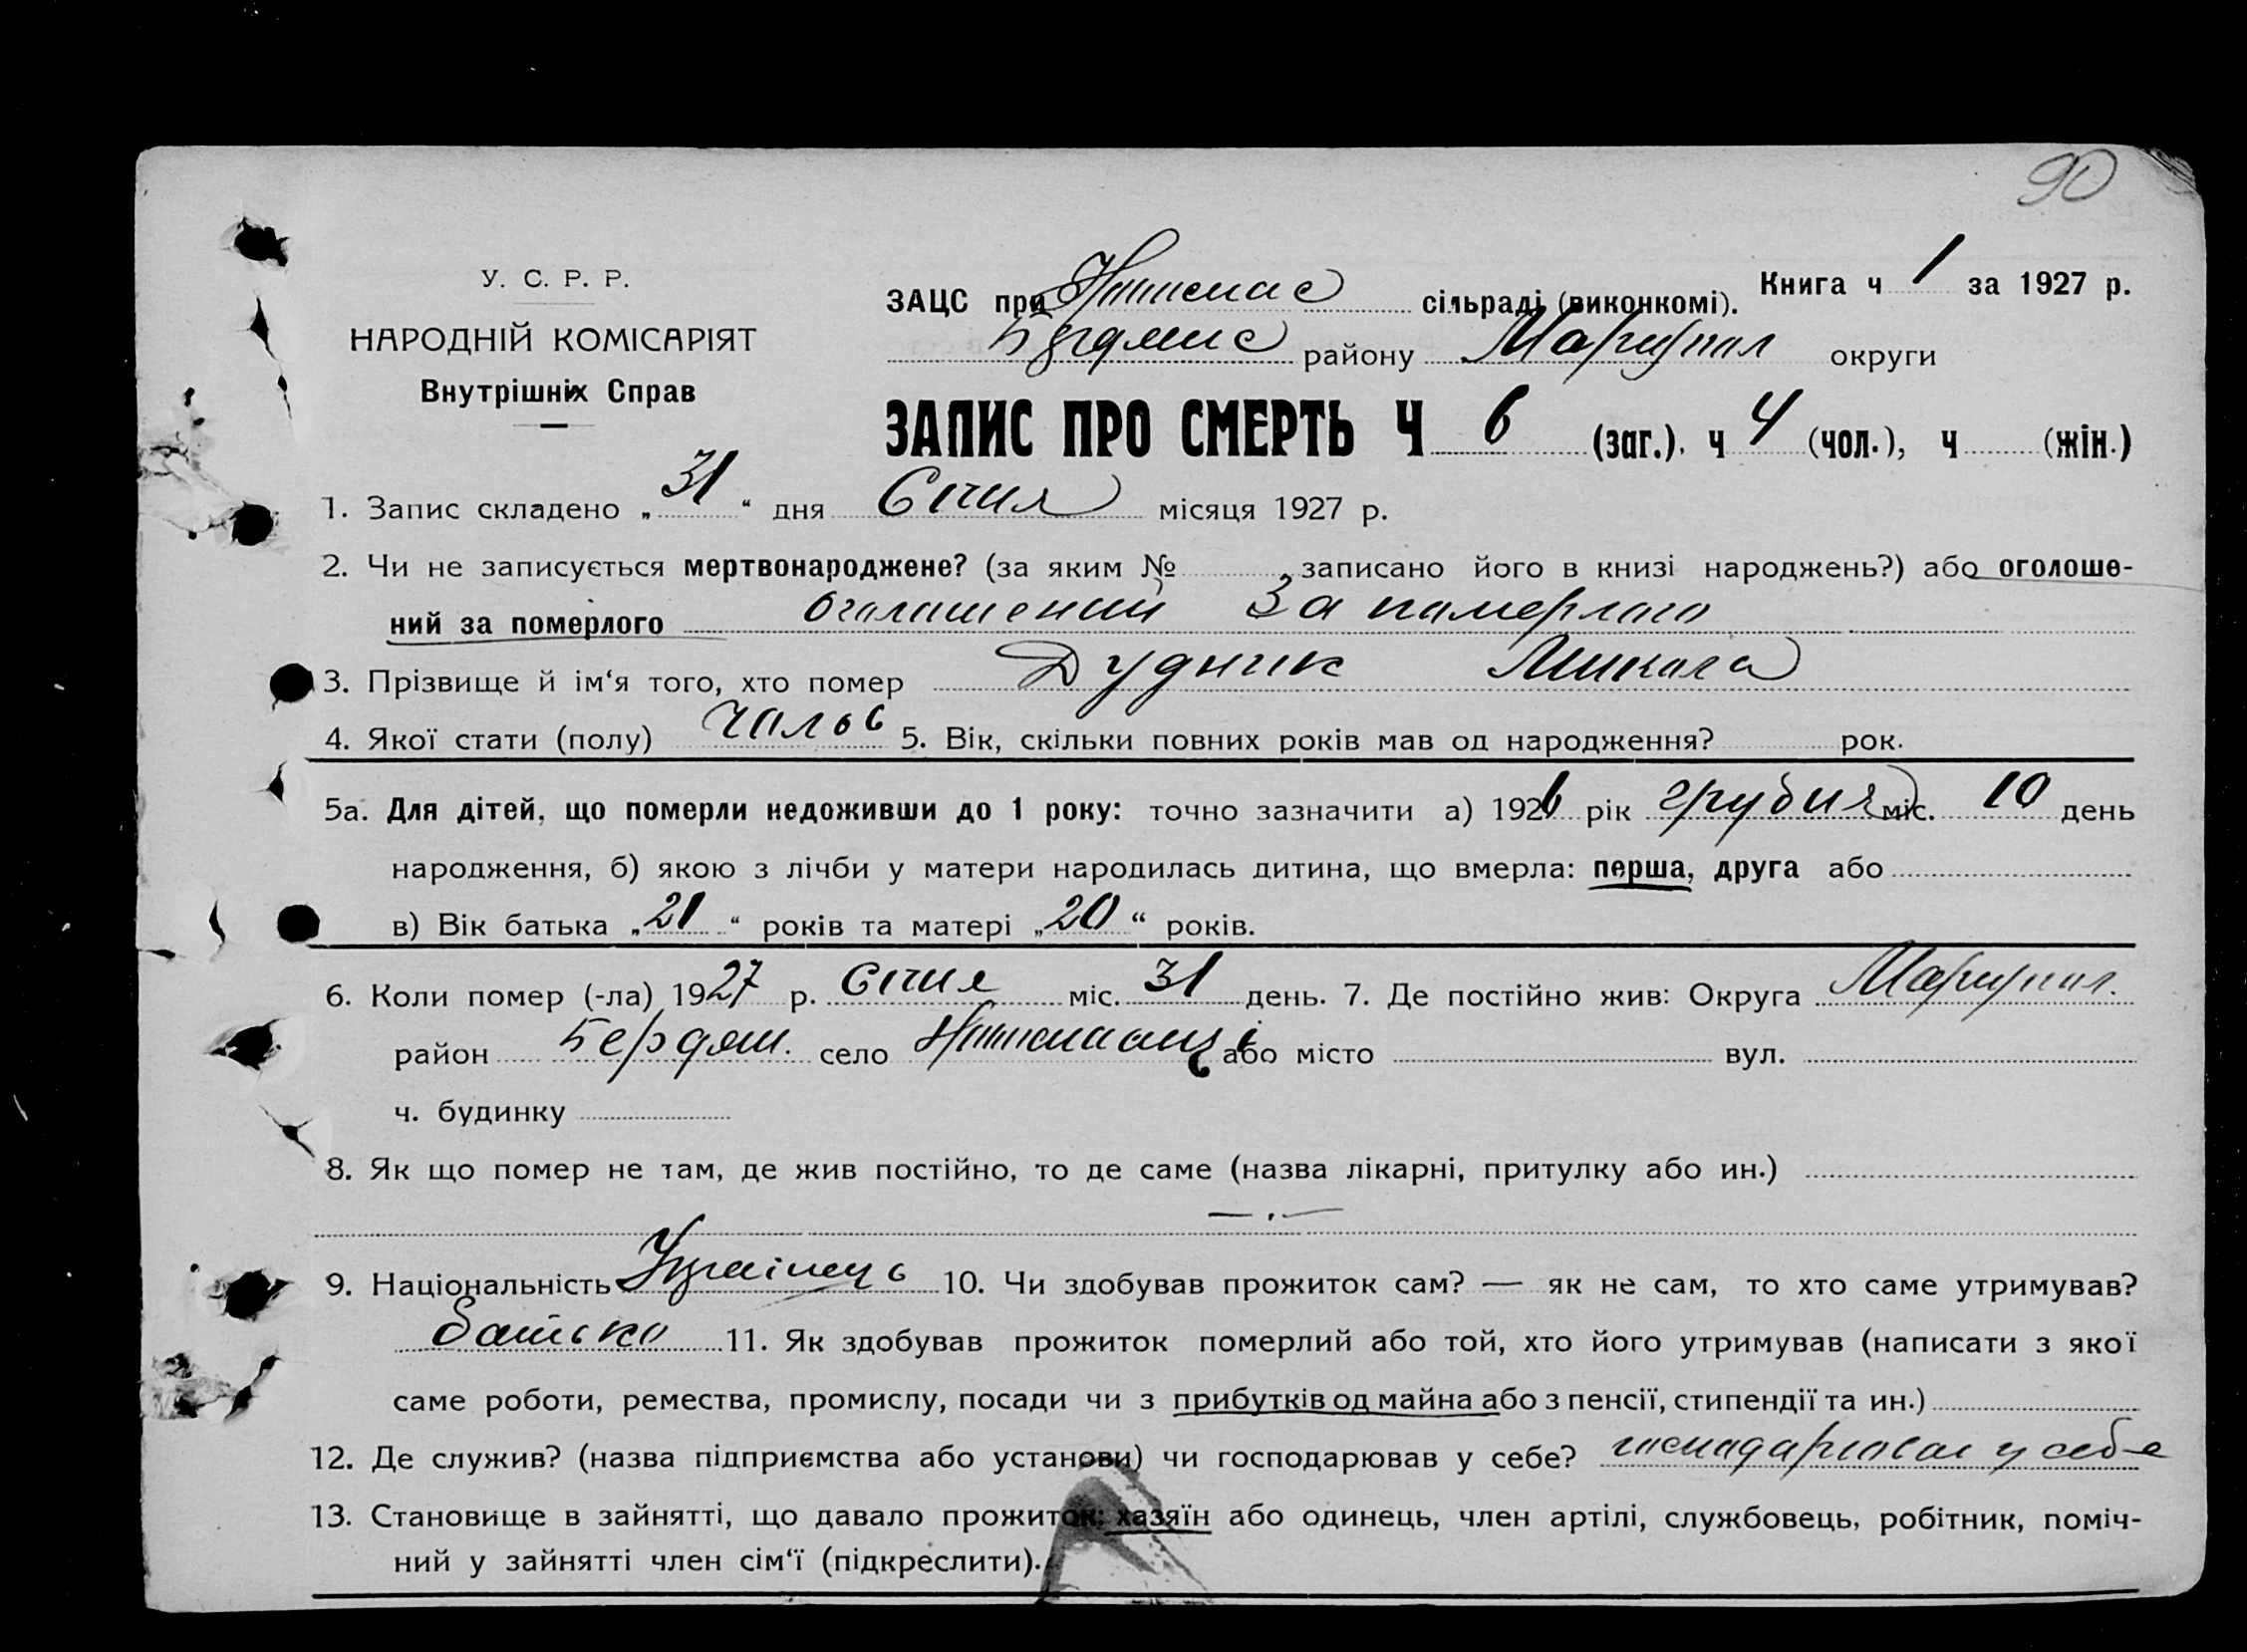 90
У. С. Р. Р.
НАРОДНІЙ КОМІСАРІЯТ
Внутрішніх Справ
ЗАЦС при сільраді (виконкомі). Книга ч 1 за 1927 р.
району Маріупол округи
ЗАПИС ПРО СМЕРТЬ Ч 6 (заг.), ч 4 (чол.), ч (жін.)
1. Запис складено „31“ дня Січня місяця 1927 р.
2. Чи не записується мертвонароджене? (за яким № записано його в книзі народжень?) або оголоше-
ний за померлого оголошений за померлого
3. Прізвище й ім‘я того, хто помер Дудник Микола
4. Якої стати (полу) чолов 5. Вік, скільки повних років мав од народження? рок.
5а. Для дітей, що померли недоживши до 1 року: точно зазначити а) 1926 рік грудня міс. 10 день
народження, б) якою з лічби у матери народилась дитина, що вмерла: перша, друга або
в) Вік батька „21“ років та матері „20“ років.
6. Коли помер (-ла) 1927 р. Січня міс. 31 день. 7. Де постійно жив: Округа Маріупол.
район Бердян. село або місто вул.
ч. будинку
8. Як що помер не там, де жив постійно, то де саме (назва лікарні, притулку або ин.)
9. Національність Українець 10. Чи здобував прожиток сам? — як не сам, то хто саме утримував?
батько 11. Як здобував прожиток померлий або той, хто його утримував (написати з якої
саме роботи, ремества, промислу, посади чи з прибутків од майна або з пенсії, стипендії та ин.)
12. Де служив? (назва підприємства або установи) чи господарював у себе? господарював у себе
13. Становище в зайнятті, що давало прожиток: хазяїн або одинець, член артілі, службовець, робітник, поміч-
ний у зайнятті член сім‘ї (підкреслити).